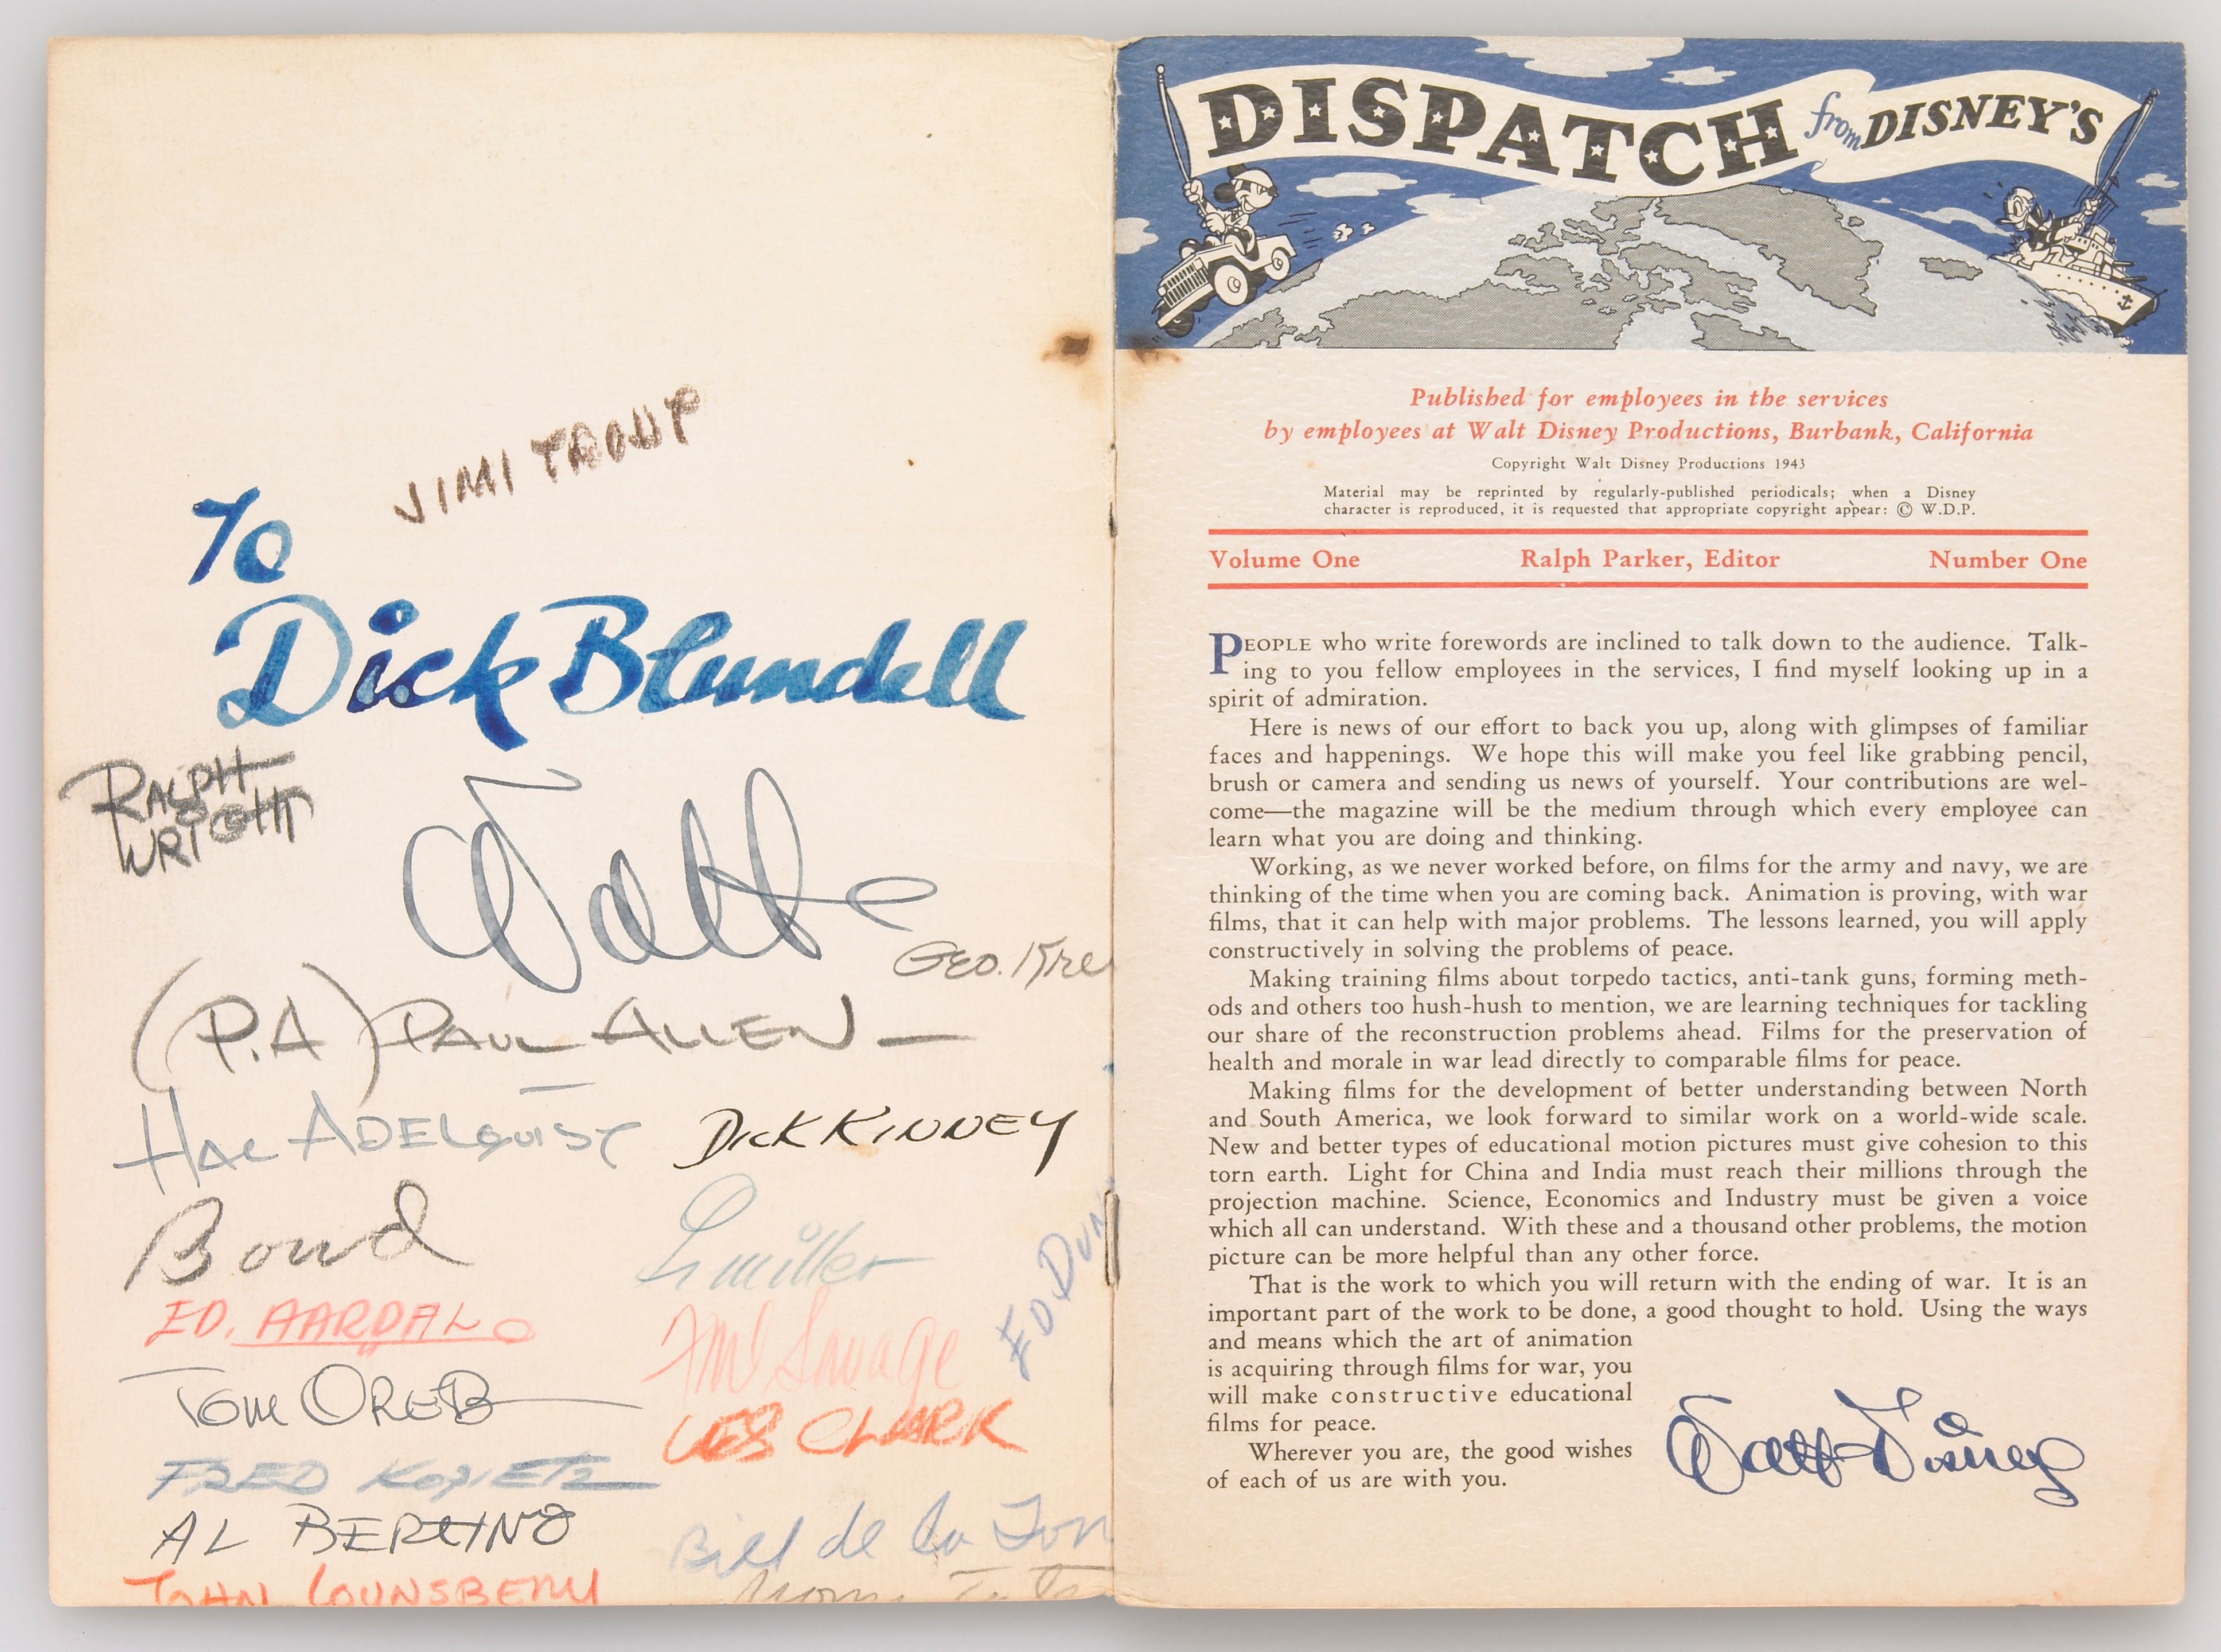 JIMI TROUT
To
Dick Blundell
RALPH
WRIGHT
Walt
GEO. Kre
(P.A) PAUL ALLEN —
HAL ADELQUIST
DICK KINNEY
Bond
L miller
ED DUN
ED. AARDAL
Savage
TOM OREB
LES CLARK
FRED KOPIETZ
AL BERTINO
Bill de la Torr
JOHN LOUNSBERY
DISPATCH from DISNEY'S
Published for employees in the services
by employees at Walt Disney Productions, Burbank, California
Copyright Walt Disney Productions 1943
Material may be reprinted by regularly-published periodicals; when a Disney
character is reproduced, it is requested that appropriate copyright appear: © W.D.P.
Volume One Ralph Parker, Editor Number One
PEOPLE who write forewords are inclined to talk down to the audience. Talk-
ing to you fellow employees in the services, I find myself looking up in a
spirit of admiration.
Here is news of our effort to back you up, along with glimpses of familiar
faces and happenings. We hope this will make you feel like grabbing pencil,
brush or camera and sending us news of yourself. Your contributions are wel-
come—the magazine will be the medium through which every employee can
learn what you are doing and thinking.
Working, as we never worked before, on films for the army and navy, we are
thinking of the time when you are coming back. Animation is proving, with war
films, that it can help with major problems. The lessons learned, you will apply
constructively in solving the problems of peace.
Making training films about torpedo tactics, anti-tank guns, forming meth-
ods and others too hush-hush to mention, we are learning techniques for tackling
our share of the reconstruction problems ahead. Films for the preservation of
health and morale in war lead directly to comparable films for peace.
Making films for the development of better understanding between North
and South America, we look forward to similar work on a world-wide scale.
New and better types of educational motion pictures must give cohesion to this
torn earth. Light for China and India must reach their millions through the
projection machine. Science, Economics and Industry must be given a voice
which all can understand. With these and a thousand other problems, the motion
picture can be more helpful than any other force.
That is the work to which you will return with the ending of war. It is an
important part of the work to be done, a good thought to hold. Using the ways
and means which the art of animation
is acquiring through films for war, you
will make constructive educational
films for peace.
Wherever you are, the good wishes
of each of us are with you.
Walt Disney